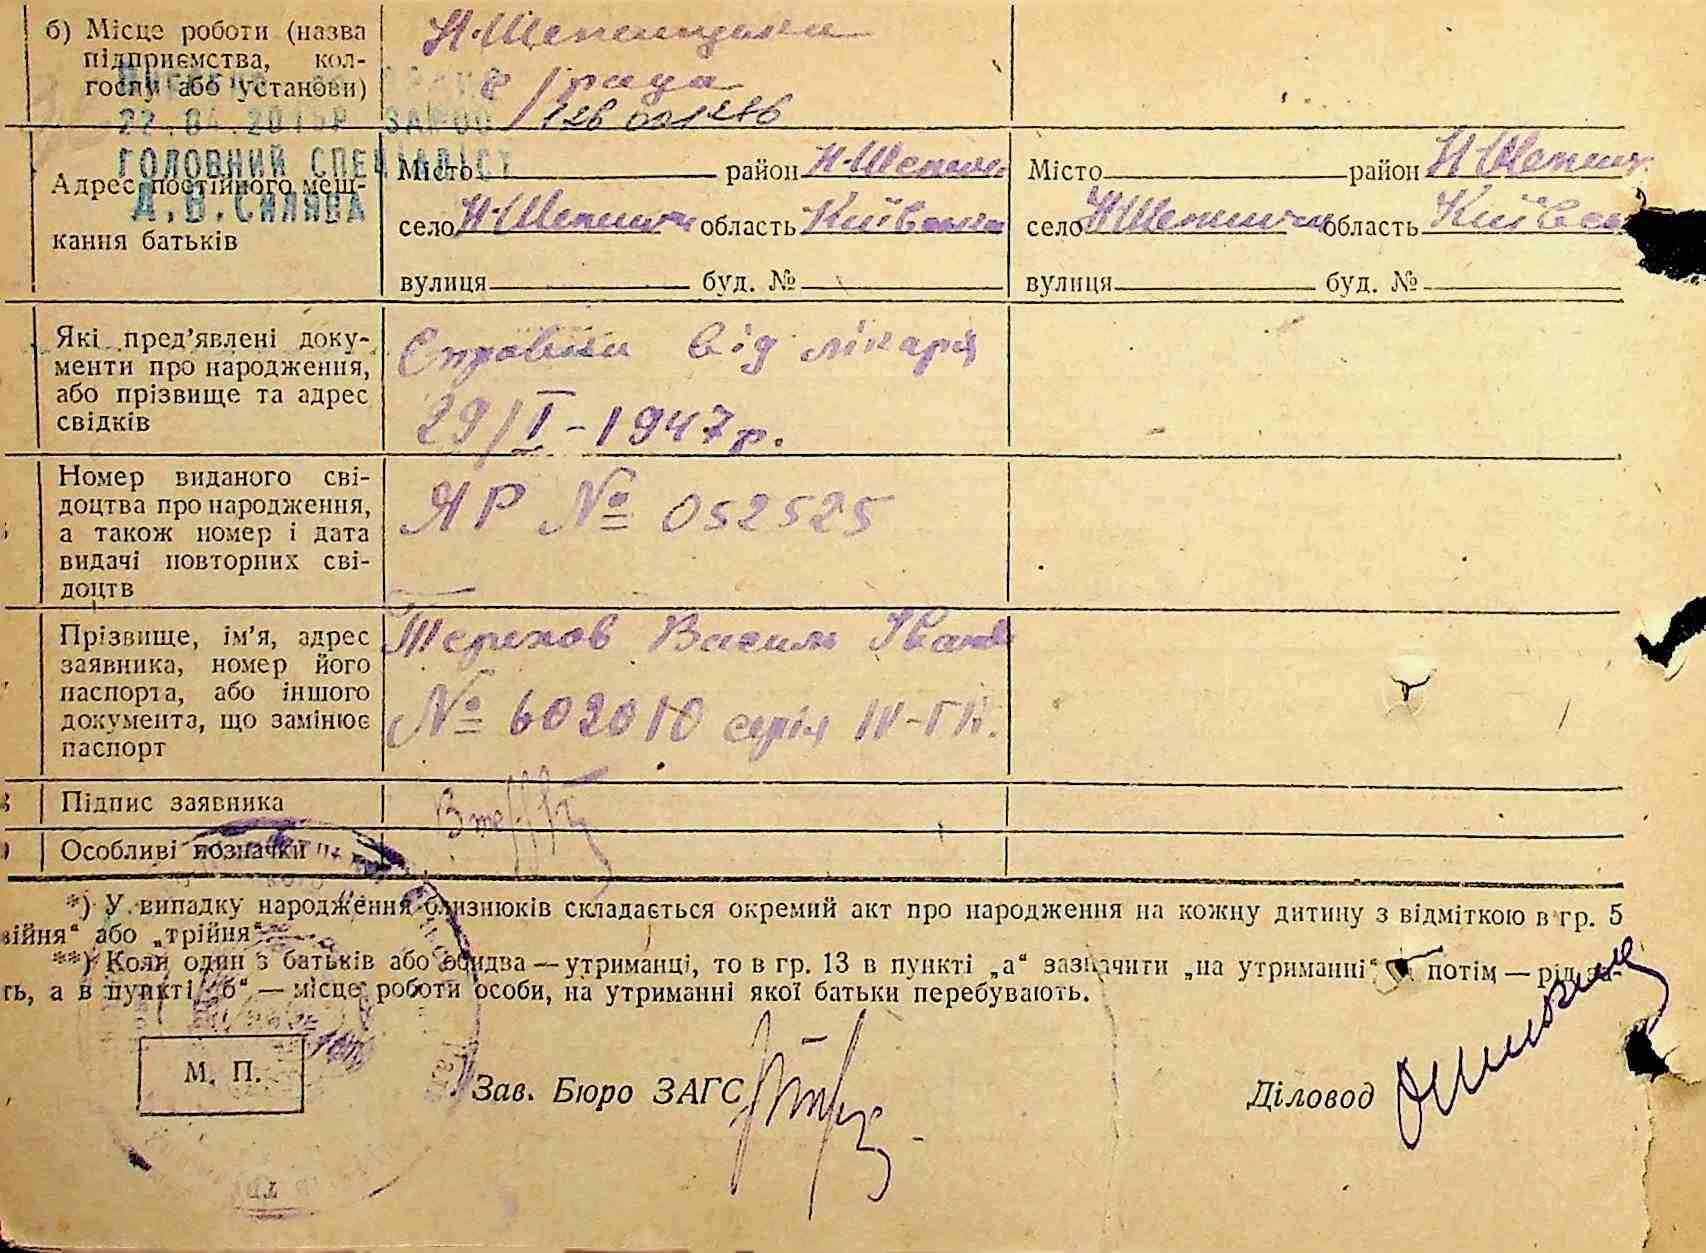 б) Місце роботи (назва
підприємства, кол-
госпу або установи)
Н-Шепилицька
с/рада
22.04.2015Р
ГОЛОВНИЙ СПЕЦІАЛІСТ
Адрес постійного меш-
кання батьків
Місто район Н-Шепилич.
село Н-Шепиличи область Київська
вулиця буд. №
Місто район Н-Шепилич.
село Н-Шепиличи область Київсь
вулиця буд. №
Які пред’явлені доку-
менти про народження,
або прізвище та адрес
свідків
Справки від лікаря
29/I-1947р.
Номер виданого сві-
доцтва про народження,
а також номер і дата
видачі повторних сві-
доцтв
ЯР № 052525
Прізвище, ім’я, адрес
заявника, номер його
паспорта, або іншого
документа, що замінює
паспорт
Терихов Василь Іван
№ 602010 серія
Підпис заявника
Особливі позначки
*) У випадку народження близнюків складається окремий акт про народження на кожну дитину з відміткою в гр. 5
війня“ або „трійня“.
**) Коли один з батьків або обидва — утриманці, то в гр. 13 в пункті „а“ зазначити „на утриманні“ потім —
ть, а в пункті „б“ — місце роботи особи, на утриманні якої батьки перебувають.
М. П.
Зав. Бюро ЗАГС
Діловод